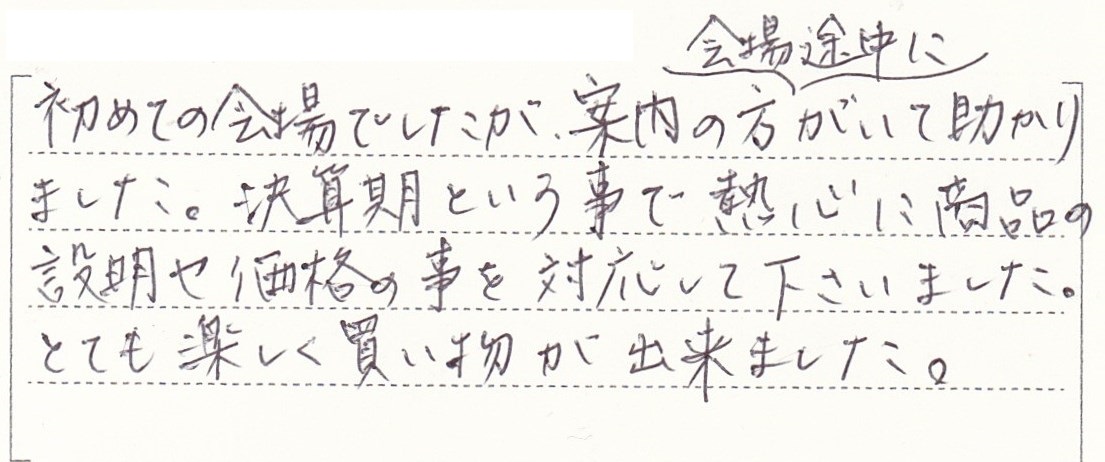 会場途中に
初めての会場でしたが、案内の方がいて助かり
ました。決算期という事で熱心に商品の
説明や価格の事を対応して下さいました。
とても楽しく買い物が出来ました。